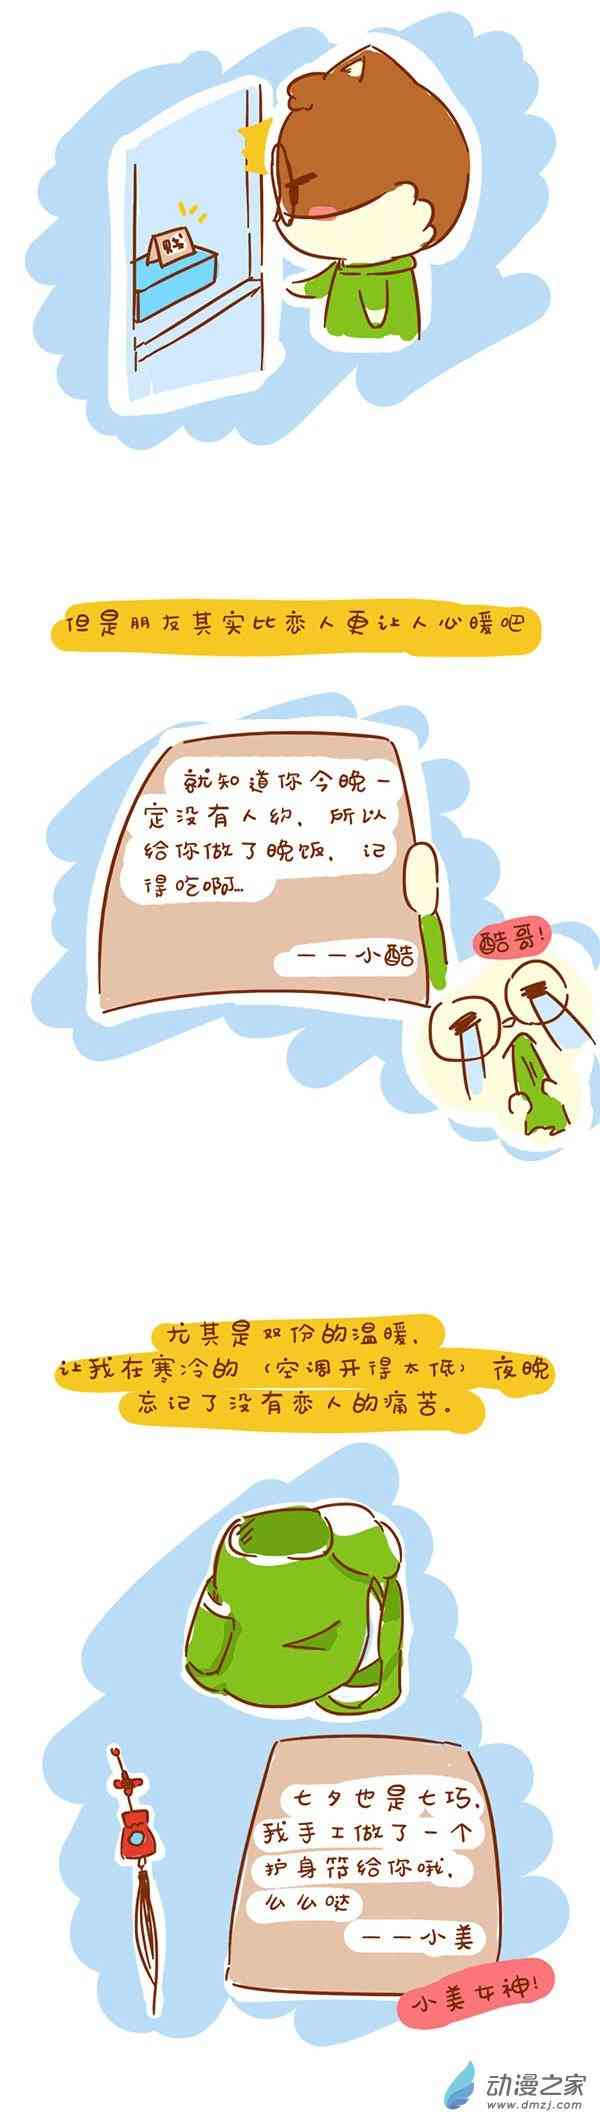 但是朋友其实比恋人更让人心暖吧
就知道你今晚一
定没有人约，所以
给你做了晚饭，记
得吃啊…
——小酷
酷哥！
尤其是双份的温暖，
让我在寒冷的（空调开得太低）夜晚
忘记了没有恋人的痛苦。
七夕也是七巧，
我手工做了一个
护身符给你哦，
么么哒
——小美
小美女神！
动漫之家
www.dmzj.com